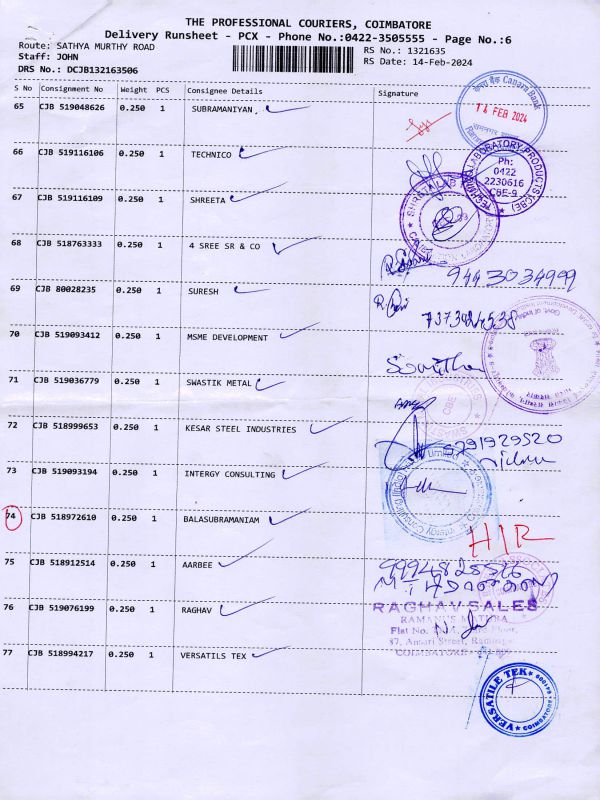 THE PROFESSIONAL COURIERS, COIMBATORE
Delivery Runsheet - PCX - Phone No.:0422-3505555 - Page No.:6
Route: SATHYA MURTHY ROAD
RS No.: 1321635
Staff: JOHN
RS Date: 14-Feb-2024
DRS No.: DCJB132163506
S No Consignment No Weight PCS Consignee Details Signature
65 CJB 519048626 0.250 1 SUBRAMANIYAN.
Canara Bank
14 FEB 2024
66 CJB 519116106 0.250 1 TECHNICO
LABORATORY PRODUCTS (CBE)
Ph:
0422
2230616
CBE-9
67 CJB 519116109 0.250 1 SHREETA
68 CJB 518763333 0.250 1 4 SREE SR & CO
9443034999
69 CJB 80028235 0.250 1 SURESH
7373024538
70 CJB 519093412 0.250 1 MSME DEVELOPMENT
71 CJB 519036779 0.250 1 SWASTIK METAL
CBE
72 CJB 518999653 0.250 1 KESAR STEEL INDUSTRIES
9791929520
73 CJB 519093194 0.250 1 INTERGY CONSULTING
74 CJB 518972610 0.250 1 BALASUBRAMANIAM
HIR
75 CJB 518912514 0.250 1 AARBEE
76 CJB 519076199 0.250 1 RAGHAV
RAGHAV SALES
COIMBATORE
77 CJB 518994217 0.250 1 VERSATILS TEX
VERSATILE TEK
COIMBATORE